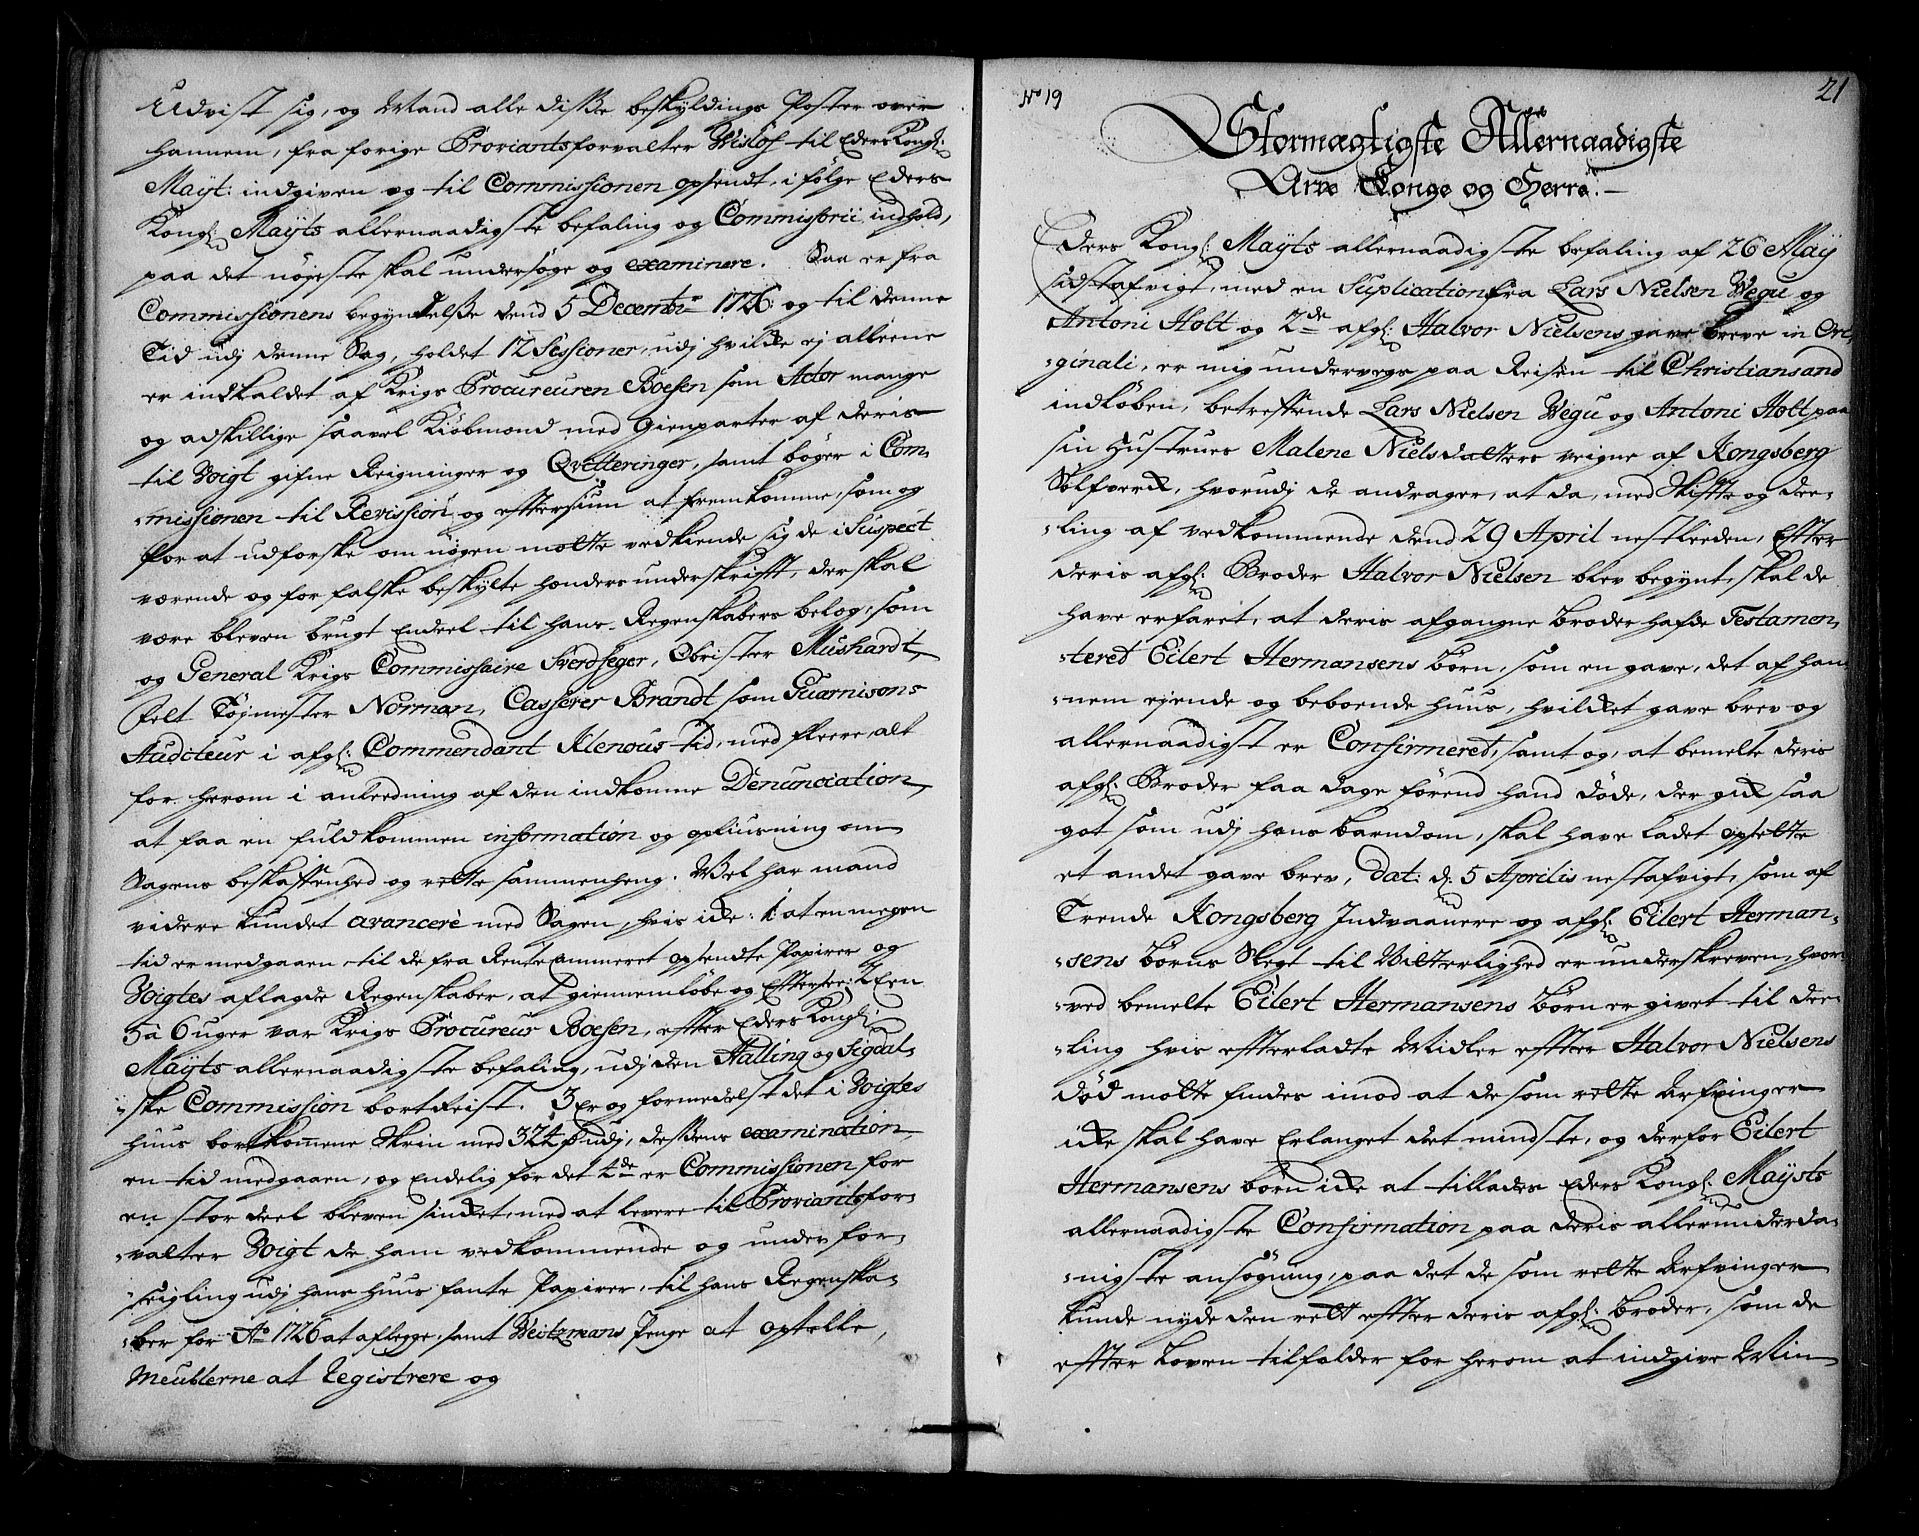 Udvist sig, og Mand alle diße beskyldings Poster over
hannem, fra forige Proviantsforvalter Wislof til Eders Kongl:
Mayt: indgiven og til Commissionen opsendt, i følge Eders
Kongl: Mayts allernaadigste befaling og Commissorii indhold,
paa det nøjeste skal undersøge og examinere. Saa er fra
Commissionens begyndelße dend 5 Decembr: 1726: og til denne
Tid udj denne Sag, holdet 12 Sessioner, udj hvilke ej alleene
er indkaldet af Krigs Procureuren Boesen som Actor mange
og adskillige saavel Kiøbmænd med Gienparter af deris
til Voigt gifne Reigninger og Qvitteringer, samt bøger i Com-
-missionen til Revission og eftersiun at fremkomme, som og
for at udforske om nogen motte vedkiende sig de i Suspect
værende og for falske beskylte hænders underskrifft, der skal
være bleven brugt Endeel til hans Regenskabers belæg, som
og General Krigs Commissaire Sverdfeger, Obrister Mushardt,
Felt Tøjmester Norman, Casserer Brandt som Guarnisons
Auditeur i afgl: Commendant Klenous tid, med fleere, alt
for herom i anleedning af den indkomne Denunciation,
at faa en fuldkommen information og opliusning om
Sagens beskaffenhed og rette sammenheng. Vel har mand
videre kundet avancere med Sagen, hvis ike: 1 at en megen
tid er medgaaen til de fra Rente Cammeret opsendte Papirer og
Voigtes aflagde Regenskaber, at giennemløbe og Efftersee: 2 Een
5 à 6 uger var Krigs Procureur Boesen, effter Eders Kongl:
Mayts allernaadigste befaling, udj den Halling og Sigdal-
-ske Commission bortreist. 3 Er og formedelst det i Voigtes
huus bortkomne Skrin med 324 udj, desßens examination,
en tid medgaaen, og Endelig for det 4de er Commissionen for
en stor deel bleven sinket, med at levere til Proviantsfor-
-valter Voigt de ham vedkommende og under for-
-seigling udj hans huus fante Papirer, til hans Regenska-
-ber for Ao 1726 at aflegge, samt Weitzmans Penge at optelle,
Meublerne at Registrere og
No 19
21
Stormægtigste Allernaadigste
Arve Konge og Herre:
Eders Kongl: Mayts allernaadigste befaling af 26 May
sidstafvigt, med en Suplication fra Lars Nielsen Wegu og
Antoni Holt og 2de afgl: Halvor Nielsens gave breve in Ori-
-ginali, er mig undervegs paa Reisen til Christiansand
indløben, betreffende Lars Nielsen Wegu og Antoni Holt paa
sin Hustrues Malene Nielsdatters veigne af Kongsberg
Sølfverk, hvorudj de andrager, at da, med Skiffte og dee-
-ling af vedkommende dend 29 April nestleeden, Effter
deris afgl: Broder Halvor Nielsen blev begynt, skal de
have erfaret, at deris afgangne broder hafde Testamen-
-teret Eilert Hermansens børn, som en gave, det af han-
-nem ejende og beboende huus, hvilket gave brev og
allernaadigst er Confirmeret, samt og, at bemelte deris
afgl: Broder faa dage førend hand døde, der gik saa
got som udj hans barndom, skal have ladet opsette
et andet gave brev, Dat: d: 5 Aprilis nestafvigt, som af
Trende Kongsberg Indvaanere og afgl: Eilert Herman-
-sens børns Slegt til Vitterlighed er underskreven, hvor-
-ved bemelte Eilert Hermansens børn er givet til dee-
-ling hvis efterladte Midler effter Halvor Nielsens
død motte findes imod at de som rette Arfvinger
ike skal have Erlanget det mindste, og derfor Eilert
Hermansens børn ike at tillades Eders Kongl: Maysts
allernaadigste Confirmation paa deris allerunderda-
-nigste ansøgning, paa det de som rette Arfvinger
kunde nyde den rett effter deris afgl: broder, som de
effter Loven tilfalder for herom at indgive Min